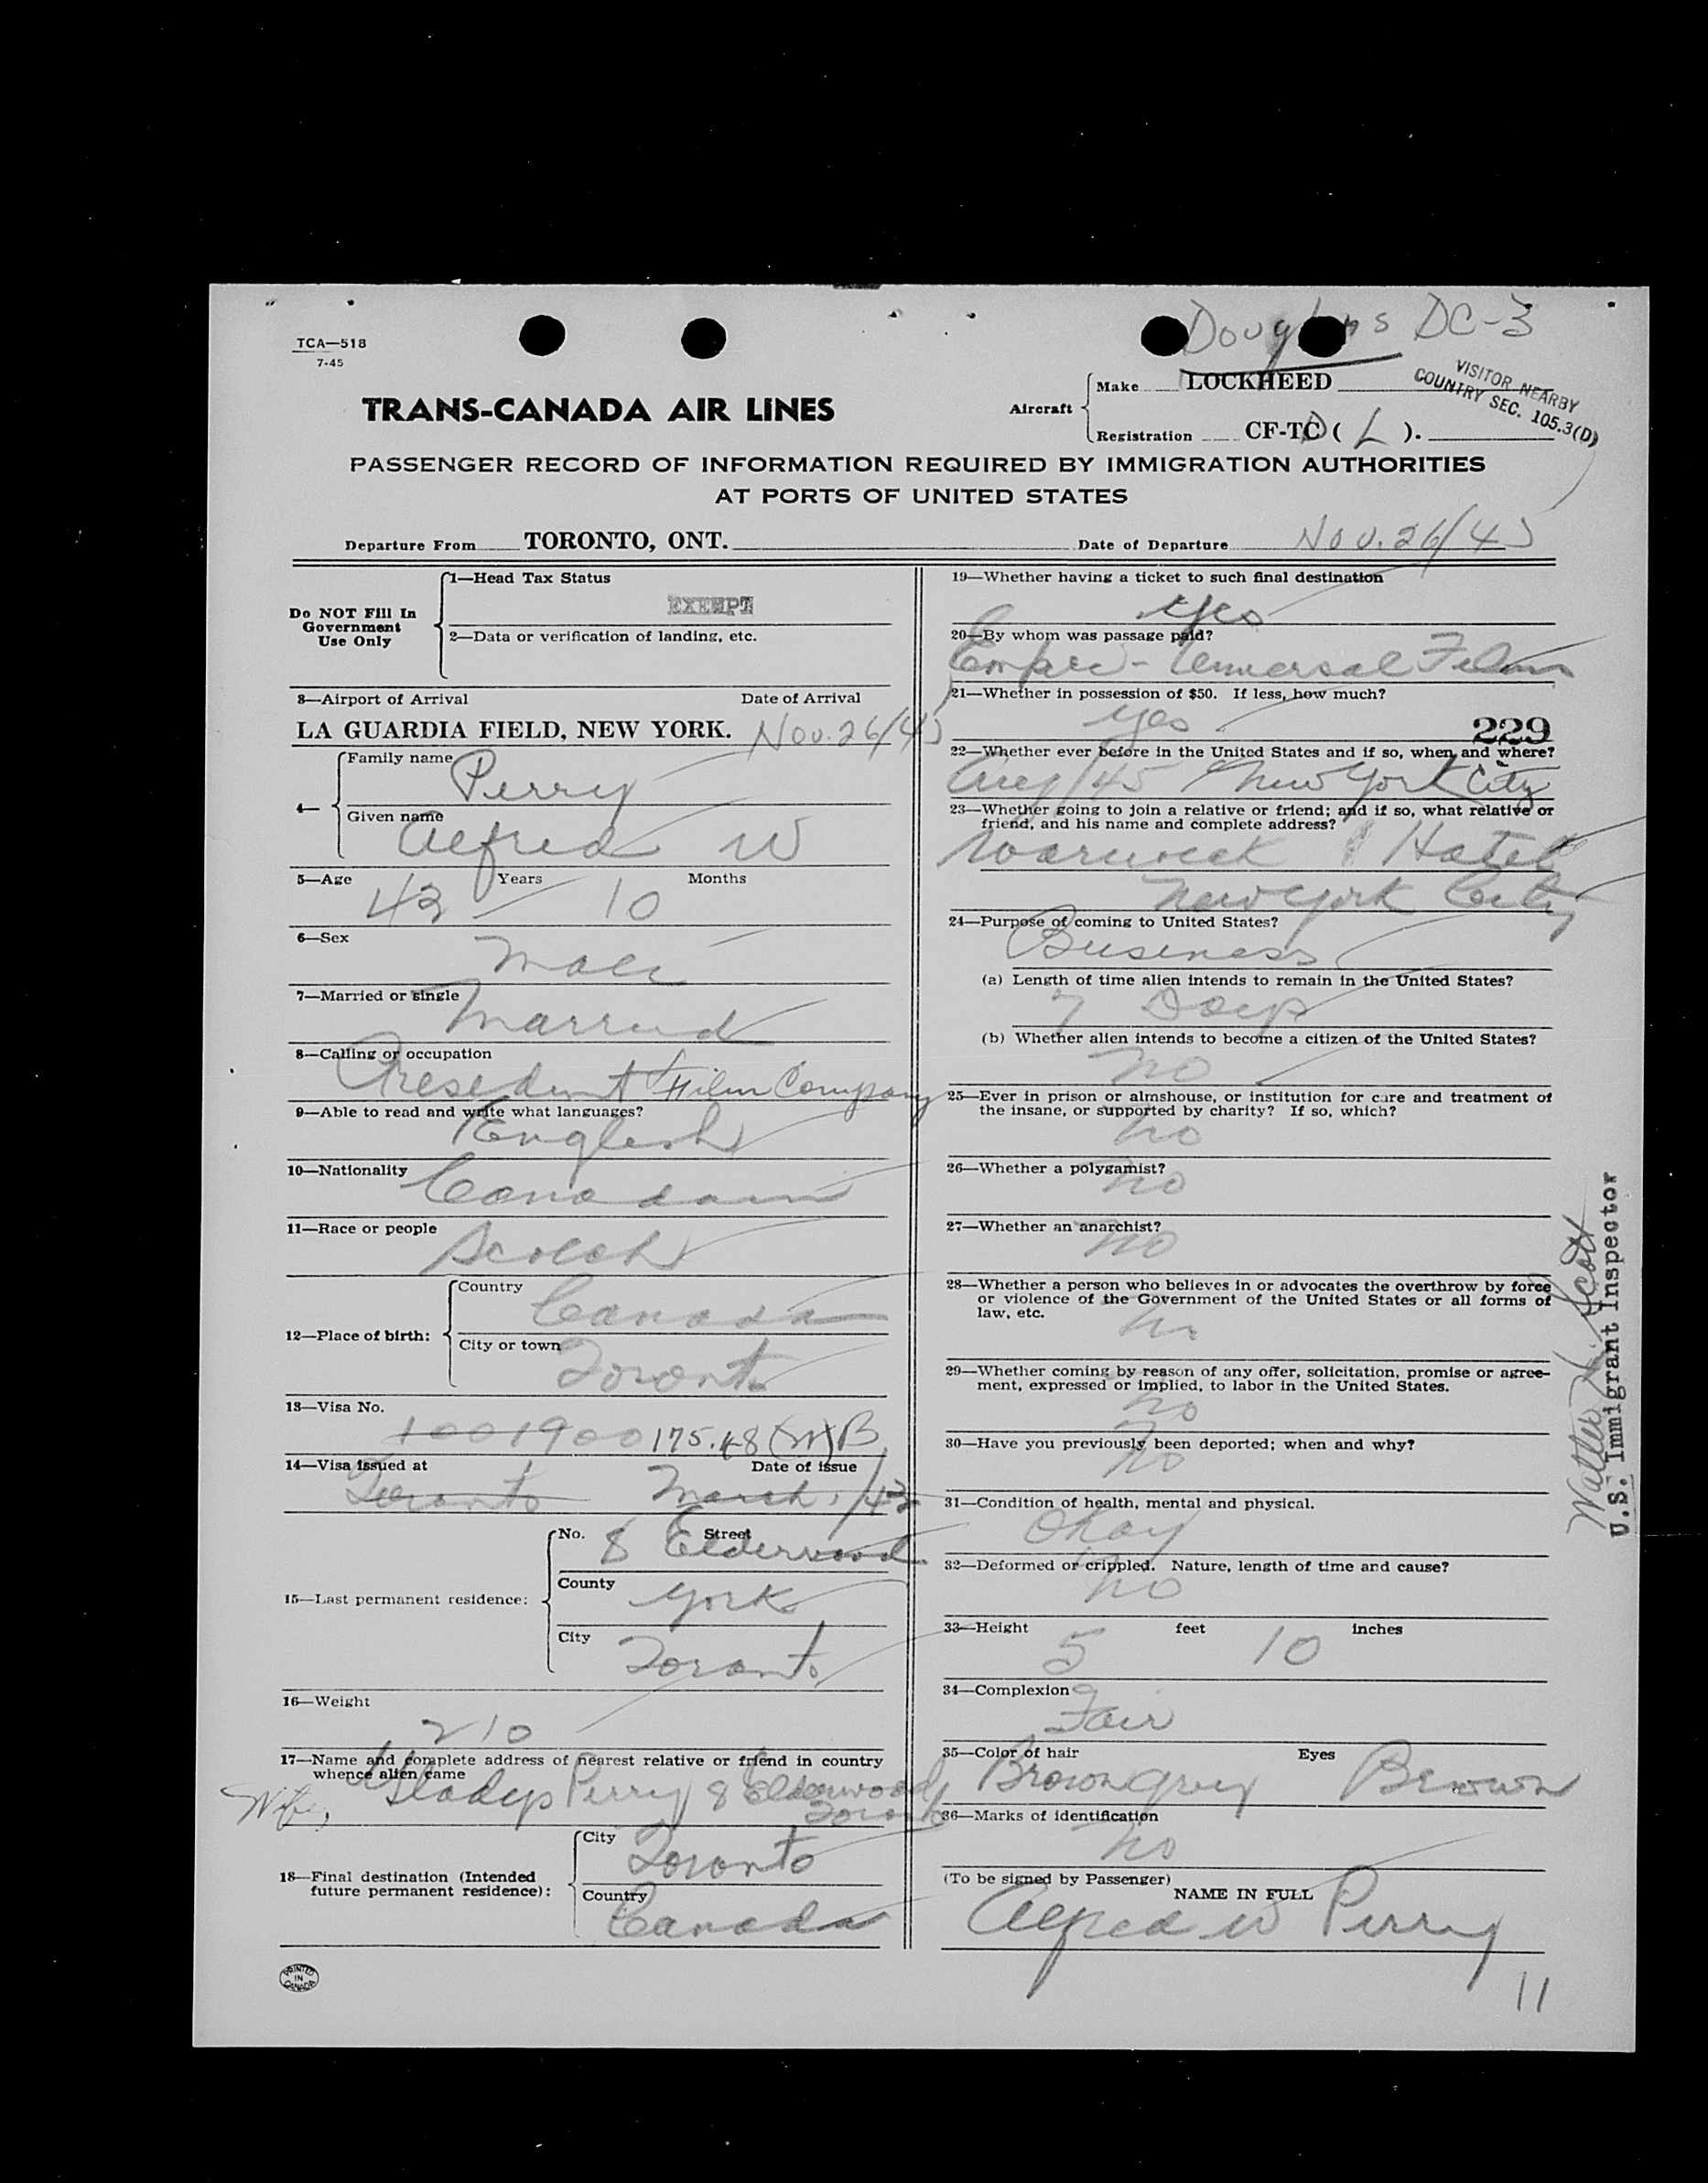 Douglas DC-3
TCA—518
7-45
VISITOR NEARBY
COUNTRY SEC. 105.3(D)
TRANS-CANADA AIR LINES
Aircraft
Make LOCKHEED
Registration CF-TCD ( L ).
PASSENGER RECORD OF INFORMATION REQUIRED BY IMMIGRATION AUTHORITIES
AT PORTS OF UNITED STATES
Departure From TORONTO, ONT. Date of Departure Nov. 26/45
Do NOT Fill In
Government
Use Only
1—Head Tax Status
EXEMPT
2—Data or verification of landing, etc.
3—Airport of Arrival Date of Arrival
LA GUARDIA FIELD, NEW YORK. Nov. 26/45
4—
Family name Perry
Given name Alfred W
5—Age 42 Years 10 Months
6—Sex
Male
7—Married or single
Married
8—Calling or occupation
President Film Company
9—Able to read and write what languages?
English
10—Nationality
Canadian
11—Race or people
Scotch
12—Place of birth:
Country
Canada
City or town
Toronto
13—Visa No.
1001900 175.48 (M) B
14—Visa issued at Date of issue
Toronto March, /42
15—Last permanent residence:
No. 8 Street Elderwood
County
York
City
Toronto
16—Weight
210
17—Name and complete address of nearest relative or friend in country
whence alien came
Wife, Gladys Perry 8 Elderwood
Toronto
18—Final destination (Intended
future permanent residence):
City
Toronto
Country
Canada
PRINTED
IN
CANADA
19—Whether having a ticket to such final destination
Yes
20—By whom was passage paid?
Empire-Universal Films
21—Whether in possession of $50. If less, how much?
Yes
229
22—Whether ever before in the United States and if so, when and where?
Aug/45 New York City
23—Whether going to join a relative or friend; and if so, what relative or
friend, and his name and complete address?
Warwick Hotel
New York City
24—Purpose of coming to United States?
Business
(a) Length of time alien intends to remain in the United States?
7 Days
(b) Whether alien intends to become a citizen of the United States?
no
25—Ever in prison or almshouse, or institution for care and treatment of
the insane, or supported by charity? If so, which?
no
26—Whether a polygamist?
no
27—Whether an anarchist?
no
28—Whether a person who believes in or advocates the overthrow by force
or violence of the Government of the United States or all forms of
law, etc.
no
29—Whether coming by reason of any offer, solicitation, promise or agree-
ment, expressed or implied, to labor in the United States.
no
30—Have you previously been deported; when and why?
no
31—Condition of health, mental and physical.
Okay
32—Deformed or crippled. Nature, length of time and cause?
no
33—Height 5 feet 10 inches
34—Complexion
Fair
35—Color of hair Eyes
Brown grey Brown
36—Marks of identification
no
(To be signed by Passenger)
NAME IN FULL
Alfred W Perry
11
Walter H. Scott
U.S. Immigrant Inspector